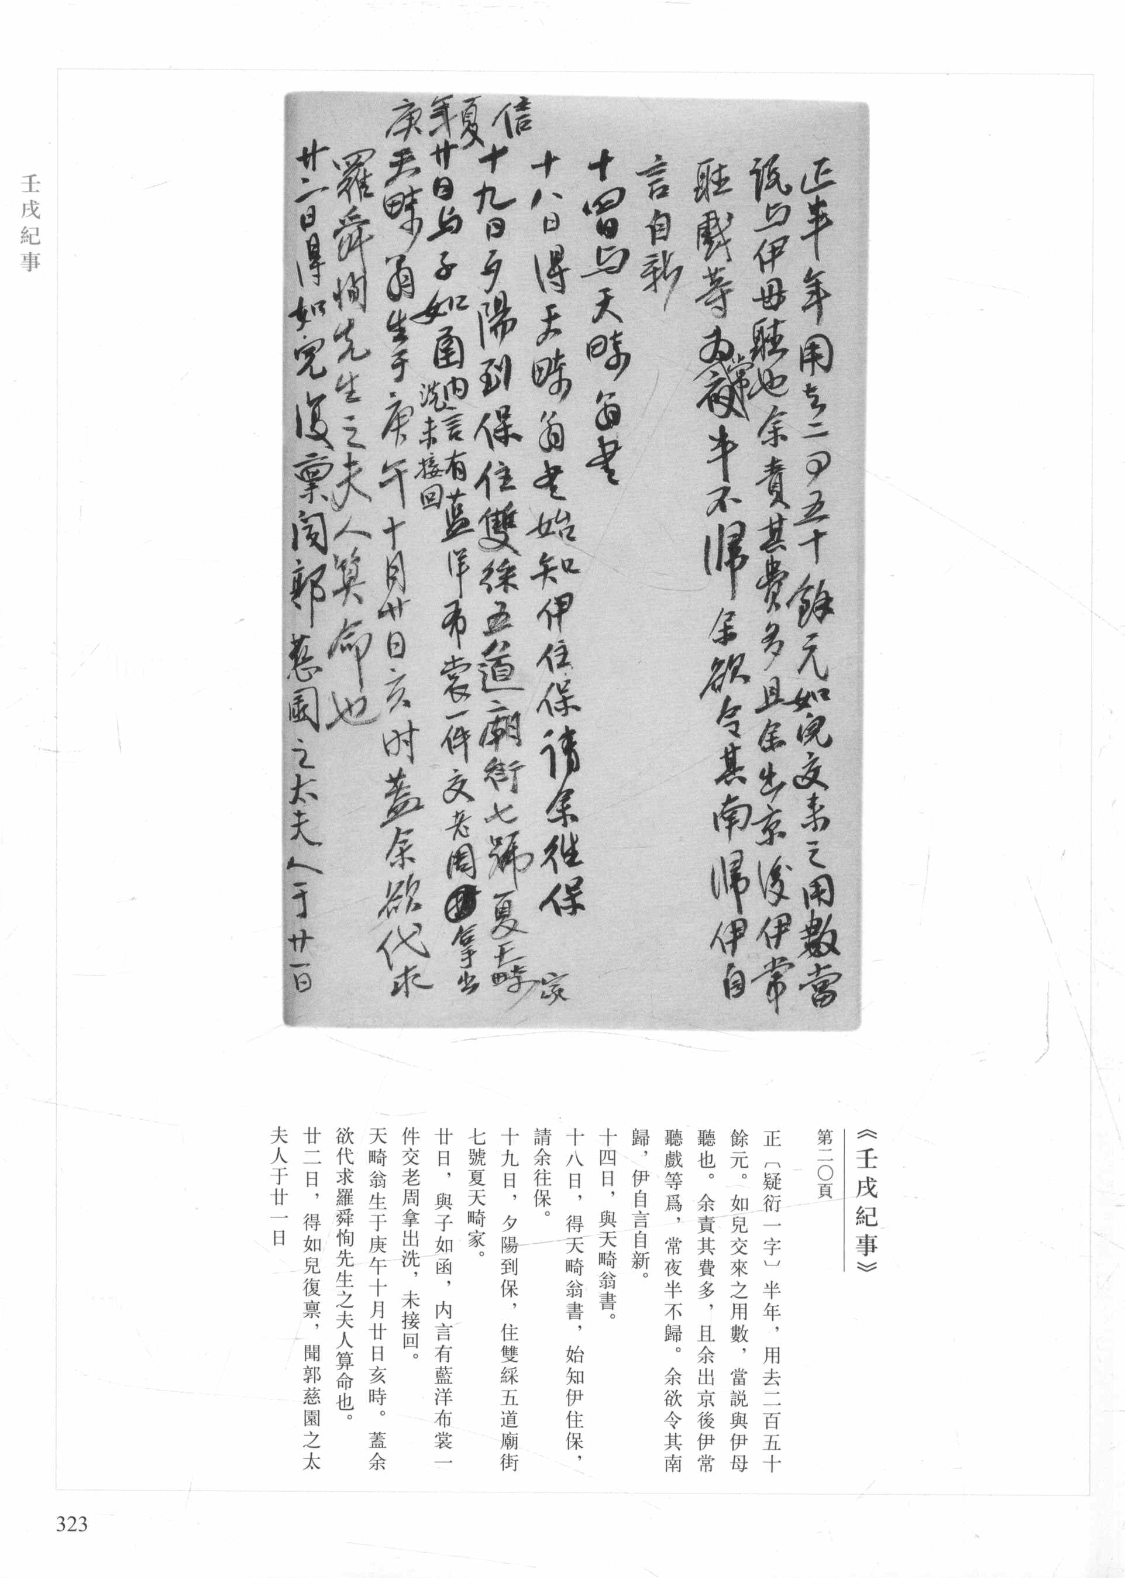 壬戌紀事
正半年用去二百五十餘元如兒交来之用數當
説与伊母聽也余責其費多且余出京後伊常
聽戲等为常夜半不歸余欲令其南歸伊自
言自新
十四日与天畸翁书
十八日得天畸翁书始知伊住保請余往保
十九日夕陽到保住雙綵五道廟街七號夏天畸家
廿日与子如函内言有藍洋布裳一件交老周拿出
洗未接回
天畸翁生于庚午十月廿日亥时蓋余欲代求
羅舜恂先生之夫人算命也
廿二日得如兒復稟闻郭慈園之太夫人于廿一日
信
夏
年
庚
《壬戌紀事》
第二〇頁
正〔疑衍一字〕半年，用去二百五十
餘元。如兒交來之用數，當説與伊母
聽也。余責其費多，且余出京後伊常
聽戲等爲，常夜半不歸。余欲令其南
歸，伊自言自新。
十四日，與天畸翁書。
十八日，得天畸翁書，始知伊住保，
請余往保。
十九日，夕陽到保，住雙綵五道廟街
七號夏天畸家。
廿日，與子如函，内言有藍洋布裳一
件交老周拿出洗，未接回。
天畸翁生于庚午十月廿日亥時。蓋余
欲代求羅舜恂先生之夫人算命也。
廿二日，得如兒復禀，聞郭慈園之太
夫人于廿一日
323